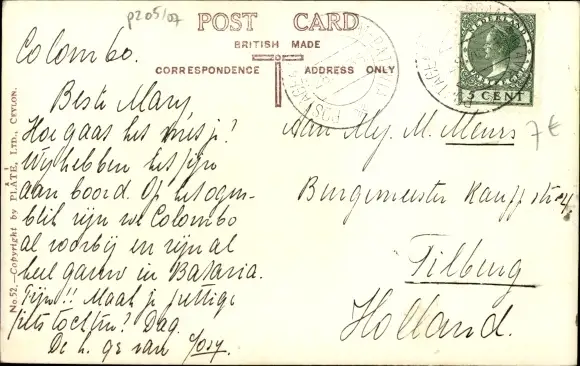 p205/07
POST CARD
BRITISH MADE
CORRESPONDENCE
ADDRESS ONLY
No 52.—Copyright by PLÂTÉ, LTD., CEYLON.
NEDERLAND
5 CENT
7 €
Colombo.
Beste Mary
Hoe gaat het met je?
Wij hebben het fijn
aan boord. Op het ogen-
blik zijn we Colombo
al voorbij en zijn al
heel gauw in Batavia.
Fijn!! Maak je prettige
fiets tochten? Dag.
De h. gr van Josy.
Aan Mej. M. Meurs
Burgemeester
Tilburg
Holland.